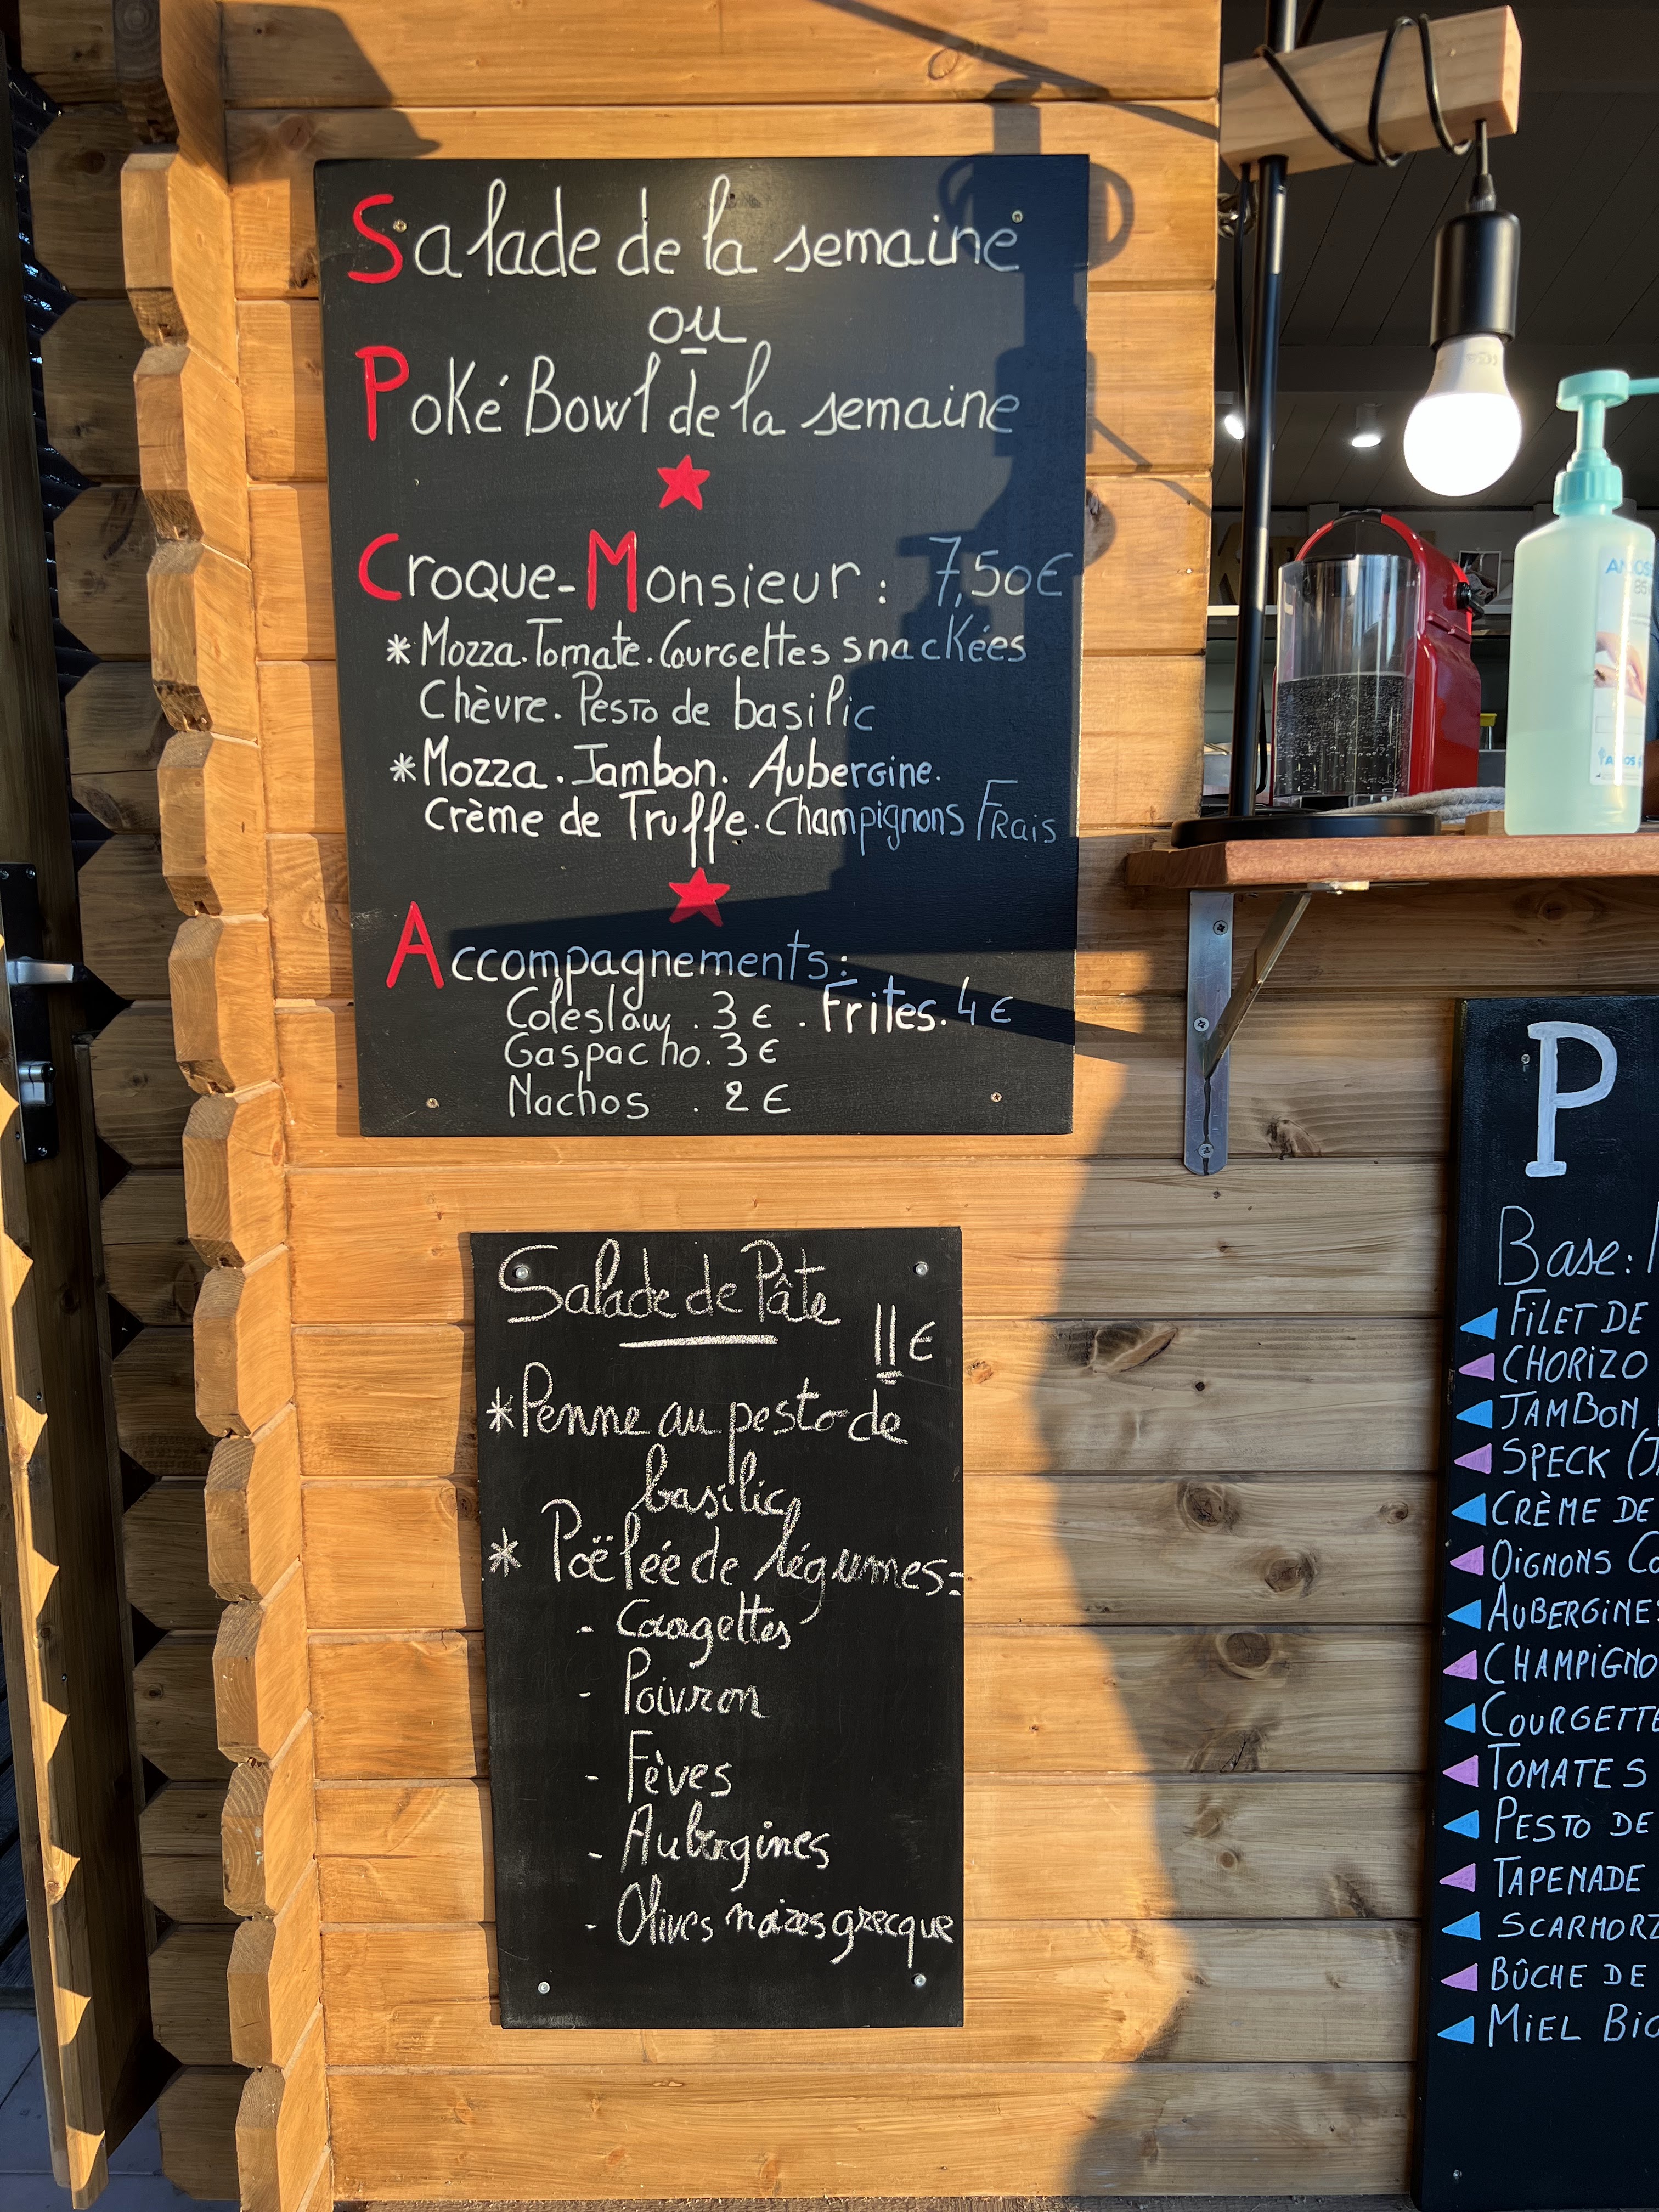 Salade de la semaine
ou
Poké Bowl de la semaine
Croque-Monsieur : 7,50€
*Mozza.Tomate.Courgettes snackées
Chèvre. Pesto de basilic
*Mozza. Jambon. Aubergine.
Crème de Truffe. Champignons Frais
Accompagnements:
Coleslaw . 3 € . Frites. 4 €
Gaspacho. 3 €
Nachos . 2 €
Salade de Pâte
11€
*Penne au pesto de
basilic
* Poëlée de légumes:
- Courgettes
- Poivron
- Fèves
- Aubergines
- Olives noires grecque
P
Base:
FILET DE
CHORIZO
JAMBON
SPECK
CRÈME DE
OIGNONS
AUBERGINES
CHAMPIGNO
COURGETTE
TOMATES
PESTO DE
TAPENADE
SCARMORZ
BÛCHE DE
MIEL BIO